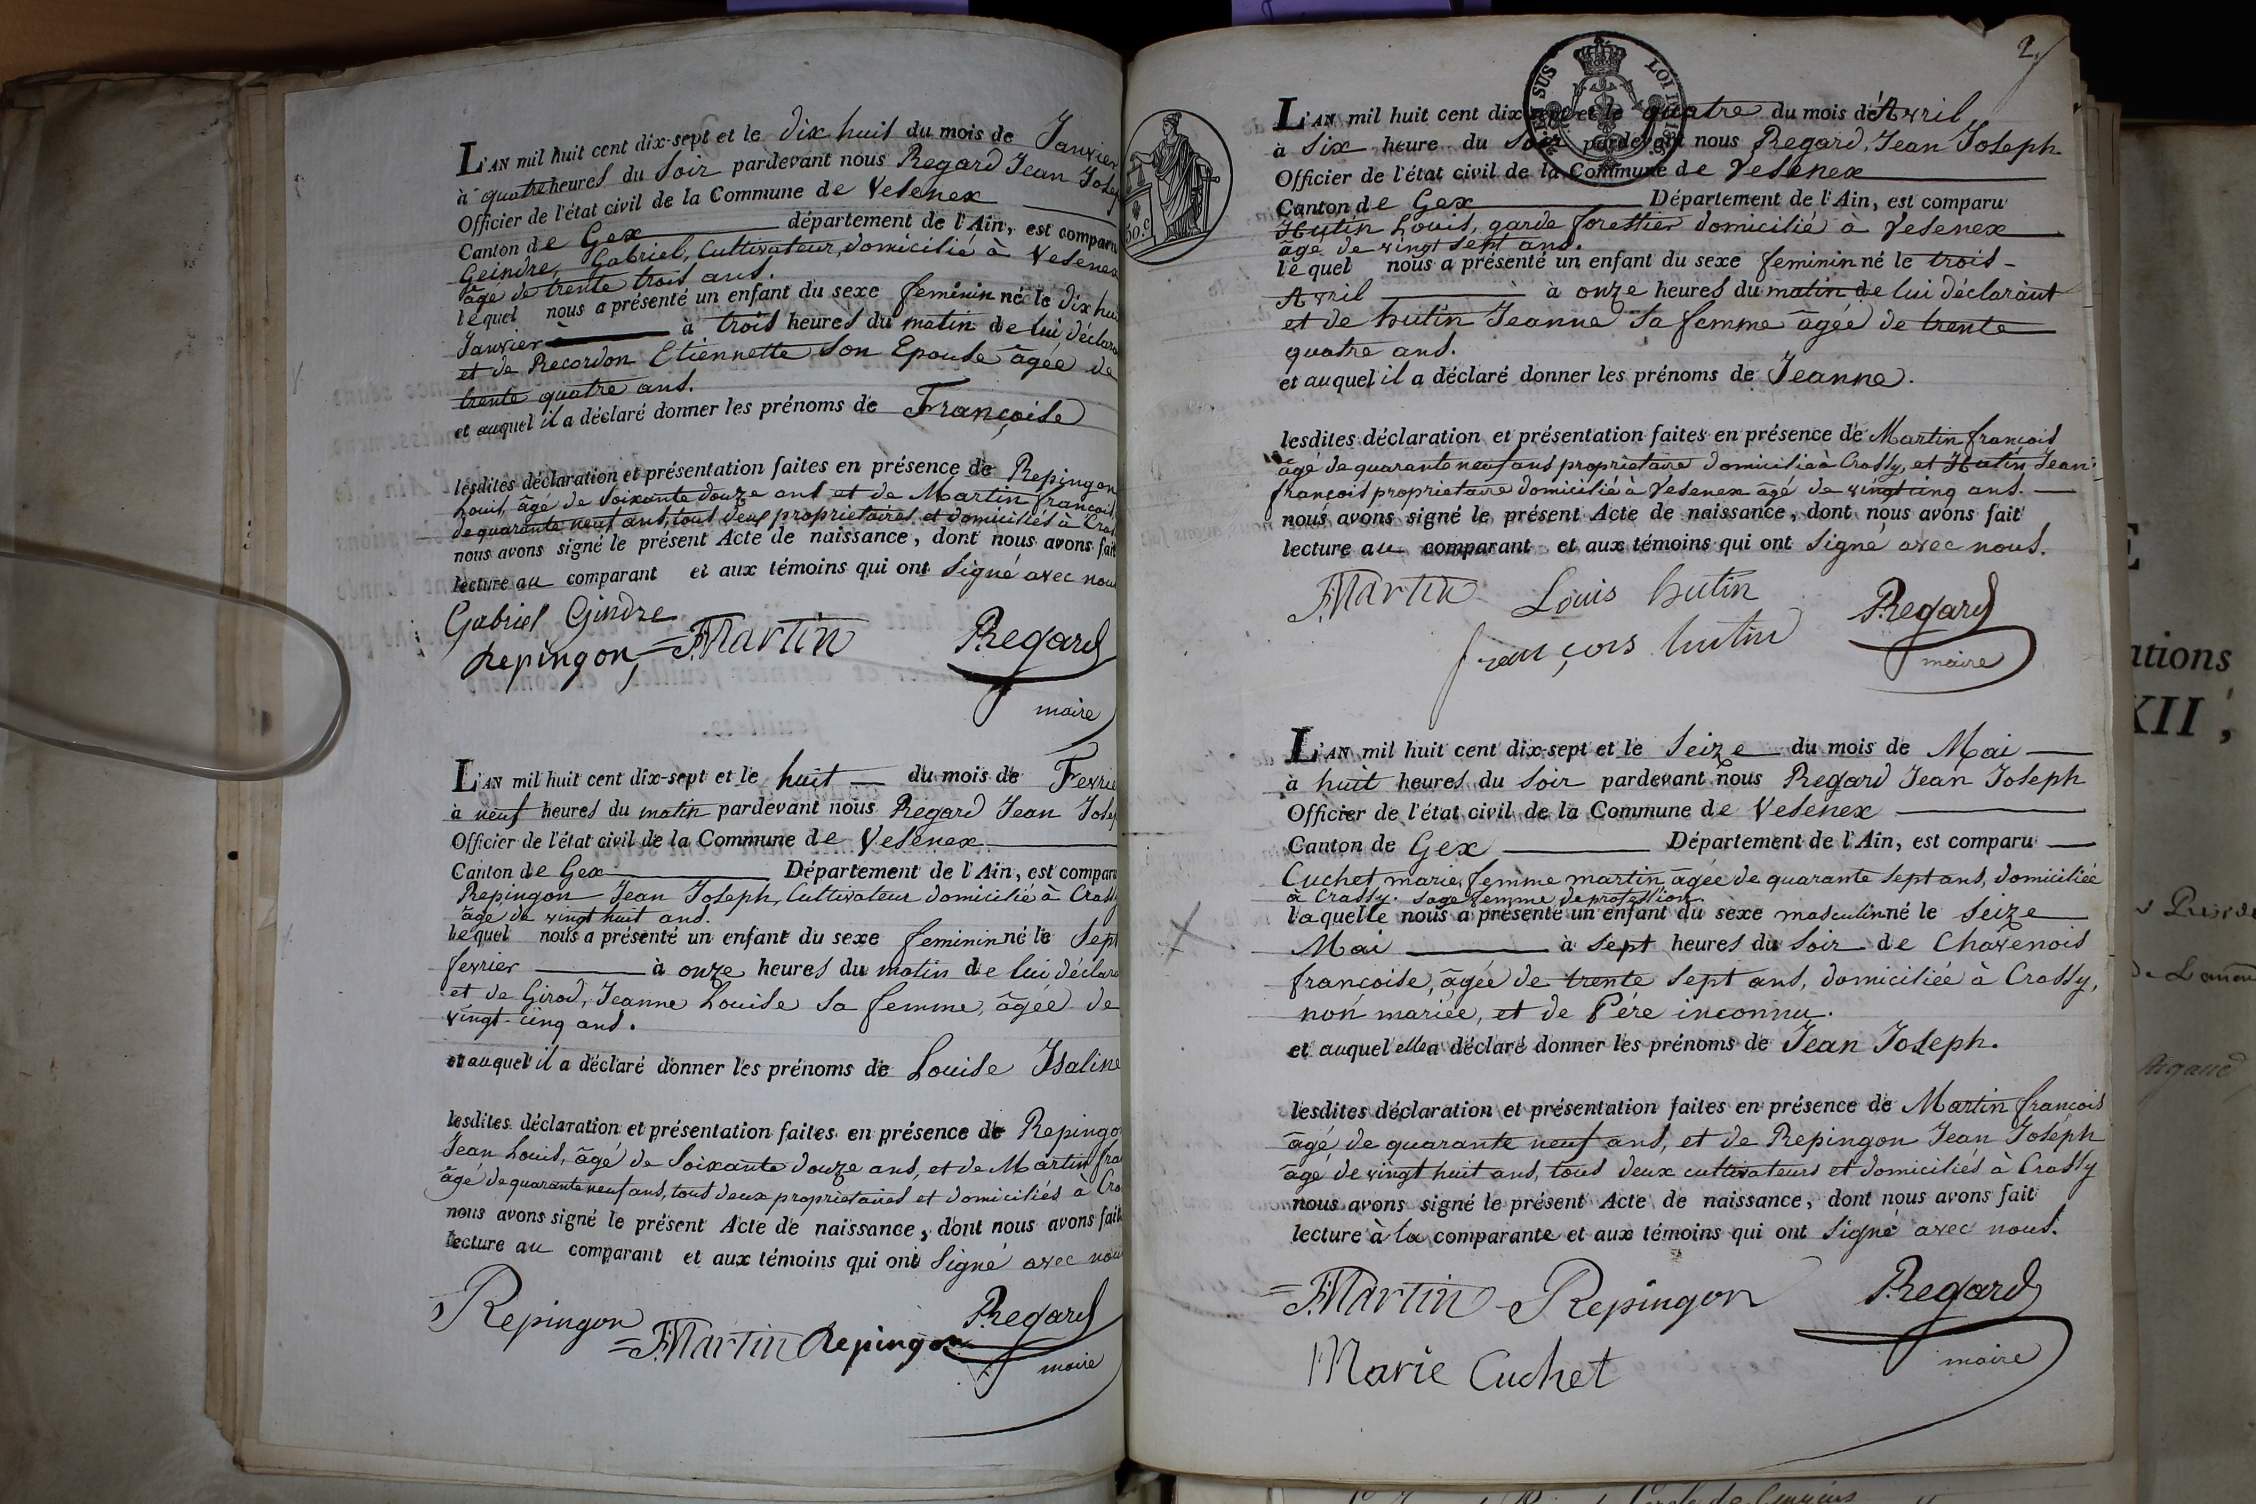 L'AN mil huit cent dix-sept et le dix huit du mois de Janvier
à quatre heures du Soir pardevant nous Regard Jean Josep
Officier de l'état civil de la Commune de Vesenex
Canton de Gex département de l'Ain, est comparu
Geindre, Gabriel, Cultivateur, domicilié à Vesenex
âgé de trente trois ans.
lequel nous a présenté un enfant du sexe feminin né le dix hui
Janvier à trois heures du matin de lui déclara
et de Recordon Etiennette son Epouse âgée de
trente quatre ans.
et auquel il a déclaré donner les prénoms de Françoise
lesdites déclaration et présentation faites en présence de Repingon
Louis, âgé de soixante douze ans et de Martin françois
de quarante neuf ans, tous deux proprietaires et domiciliés à Cras
nous avons signé le présent Acte de naissance, dont nous avons fait
lecture au comparant et aux témoins qui ont signé avec nous
Gabriel Gindre
repingon F. Martin Regard
maire
L'AN mil huit cent dix-sept et le huit du mois de Fevrie
à neuf heures du matin pardevant nous Regard Jean Josep
Officier de l'état civil de la Commune de Vesenex
Canton de Gex Département de l'Ain, est comparu
Repingon Jean Joseph, Cultivateur domicilié à Crassy
âgé de vingt huit ans.
lequel nous a présenté un enfant du sexe feminin né le Sept
fevrier à onze heures du matin de lui déclara
et de Girod, Jeanne Louise sa femme, âgée de
vingt-cinq ans.
et auquel il a déclaré donner les prénoms de Louise Isaline
lesdites déclaration et présentation faites en présence de Repingo
Jean Louis, âgé de soixante douze ans, et de Martin fra
âgé de quarante neuf ans, tous deux proprietaires et domiciliés à Cra
nous avons signé le présent Acte de naissance, dont nous avons fait
lecture au comparant et aux témoins qui ont signé avec nou
Repingon F. Martin repingon Regard
maire
2
SUS LOI
50.c
L'AN mil huit cent dix-sept et le quatre du mois d'Avril
à six heure du Soir pardevant nous Regard, Jean Joseph
Officier de l'état civil de la Commune de Vesenex
Canton de Gex Département de l'Ain, est comparu
Hutin Louis, garde forestier domicilié à Vesenex
âgé de vingt sept ans.
lequel nous a présenté un enfant du sexe feminin né le trois
Avril à onze heures du matin de lui déclarant
et de hutin Jeanne sa femme âgée de trente
quatre ans.
et auquel il a déclaré donner les prénoms de Jeanne.
lesdites déclaration et présentation faites en présence de Martin françois
âgé de quarante neuf ans proprietaire domicilié à Crassy, et Hutin Jean
françois proprietaire domicilié à Vesenex âgé de vingt cinq ans.
nous avons signé le présent Acte de naissance, dont nous avons fait
lecture au comparant et aux témoins qui ont signé avec nous.
F. Martin Louis hutin Regard
françois hutin maire
L'AN mil huit cent dix-sept et le Seize du mois de Mai
à huit heures du Soir pardevant nous Regard Jean Joseph
Officier de l'état civil de la Commune de Vesenex
Canton de Gex Département de l'Ain, est comparu
Cuchet marie, femme martin âgée de quarante sept ans, domiciliée
à Crassy. Sage femme de profession
laquelle nous a présenté un enfant du sexe masculin né le Seize
Mai à Sept heures du Soir de Chavenois
françoise, âgée de trente sept ans, domiciliée à Crassy,
non mariée, et de Père inconnu.
et auquel elle a déclaré donner les prénoms de Jean Joseph.
lesdites déclaration et présentation faites en présence de Martin françois
âgé de quarante neuf ans, et de Repingon Jean Joseph
âgé de vingt huit ans, tous deux cultivateurs et domiciliés à Crassy
nous avons signé le présent Acte de naissance, dont nous avons fait
lecture à la comparante et aux témoins qui ont signé avec nous.
F. Martin Repingon Regard
Marie Cuchet maire
ations
XII,